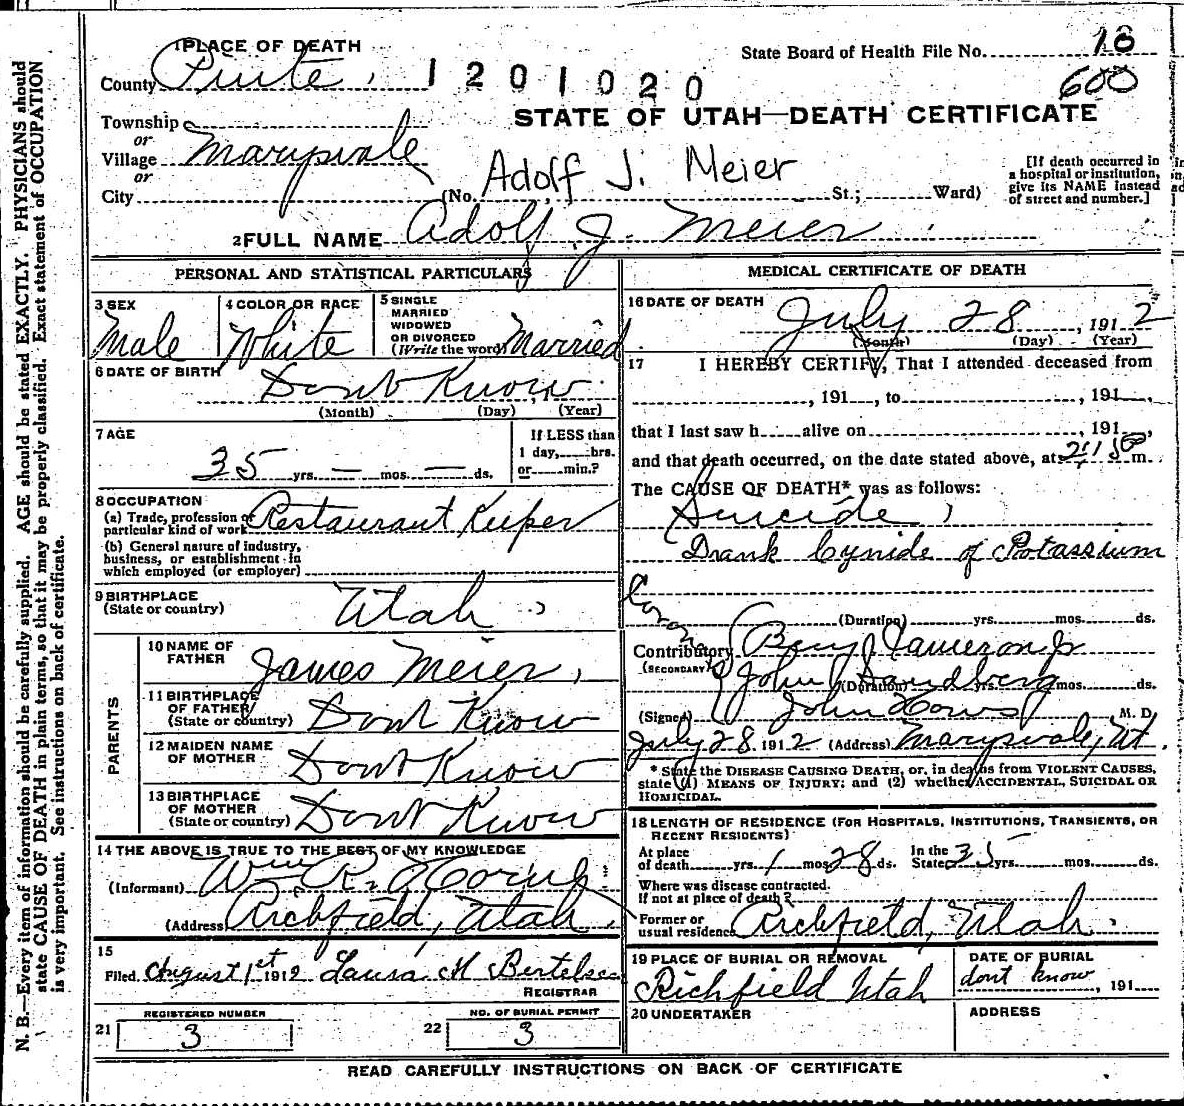 1 PLACE OF DEATH
State Board of Health File No. 18
County Piute. 1201020
600
STATE OF UTAH—DEATH CERTIFICATE
Township
or
Village Marysvale
or
City (No. Adolf J. Meier St.; Ward)
[If death occurred in
a hospital or institution,
give its NAME instead
of street and number.]
2 FULL NAME Adolf J. Meier
PERSONAL AND STATISTICAL PARTICULARS
3 SEX
Male
4 COLOR OR RACE
White
5 SINGLE
MARRIED
WIDOWED
OR DIVORCED
(Write the word) Married
6 DATE OF BIRTH
Dont Know
(Month) (Day) (Year)
7 AGE
35 yrs. — mos. — ds.
If LESS than
1 day, hrs.
or min.?
8 OCCUPATION
(a) Trade, profession or
particular kind of work Restaurant Keeper
(b) General nature of industry,
business, or establishment in
which employed (or employer)
9 BIRTHPLACE
(State or country) Utah
PARENTS
10 NAME OF
FATHER James Meier,
11 BIRTHPLACE
OF FATHER
(State or country) Dont Know
12 MAIDEN NAME
OF MOTHER Dont Know
13 BIRTHPLACE
OF MOTHER
(State or country) Dont Know
14 THE ABOVE IS TRUE TO THE BEST OF MY KNOWLEDGE
(Informant) Wm R.
(Address) Richfield, Utah.
15
Filed August 1st 1912 Laura M Bertelsen
REGISTRAR
21 REGISTERED NUMBER
3
22 NO. OF BURIAL PERMIT
3
MEDICAL CERTIFICATE OF DEATH
16 DATE OF DEATH
July 28, 1912
(Month) (Day) (Year)
17 I HEREBY CERTIFY, That I attended deceased from
, 191 , to , 191 ,
that I last saw h alive on , 191 ,
and that death occurred, on the date stated above, at m.
The CAUSE OF DEATH* was as follows:
Suicide,
Drank Cynide of Potassium
(Duration) yrs. mos. ds.
Coroner
Contributory Cameron Jr
(SECONDARY) John Sandberg
(Duration) yrs. mos. ds.
(Signed) John M. D.
July 28, 1912 (Address) Marysvale, Ut.
* State the DISEASE CAUSING DEATH, or, in deaths from VIOLENT CAUSES,
state (1) MEANS OF INJURY; and (2) whether ACCIDENTAL, SUICIDAL OR
HOMICIDAL.
18 LENGTH OF RESIDENCE (FOR HOSPITALS, INSTITUTIONS, TRANSIENTS, OR
RECENT RESIDENTS)
At place
of death yrs. 1 mos. 28 ds.
In the
State 35 yrs. mos. ds.
Where was disease contracted,
If not at place of death?
Former or
usual residence Richfield, Utah.
19 PLACE OF BURIAL OR REMOVAL
Richfield Utah
DATE OF BURIAL
dont know, 191
20 UNDERTAKER
ADDRESS
READ CAREFULLY INSTRUCTIONS ON BACK OF CERTIFICATE
N. B.—Every item of information should be carefully supplied. AGE should be stated EXACTLY. PHYSICIANS should
state CAUSE OF DEATH in plain terms, so that it may be properly classified. Exact statement of OCCUPATION
is very important. See instructions on back of certificate.